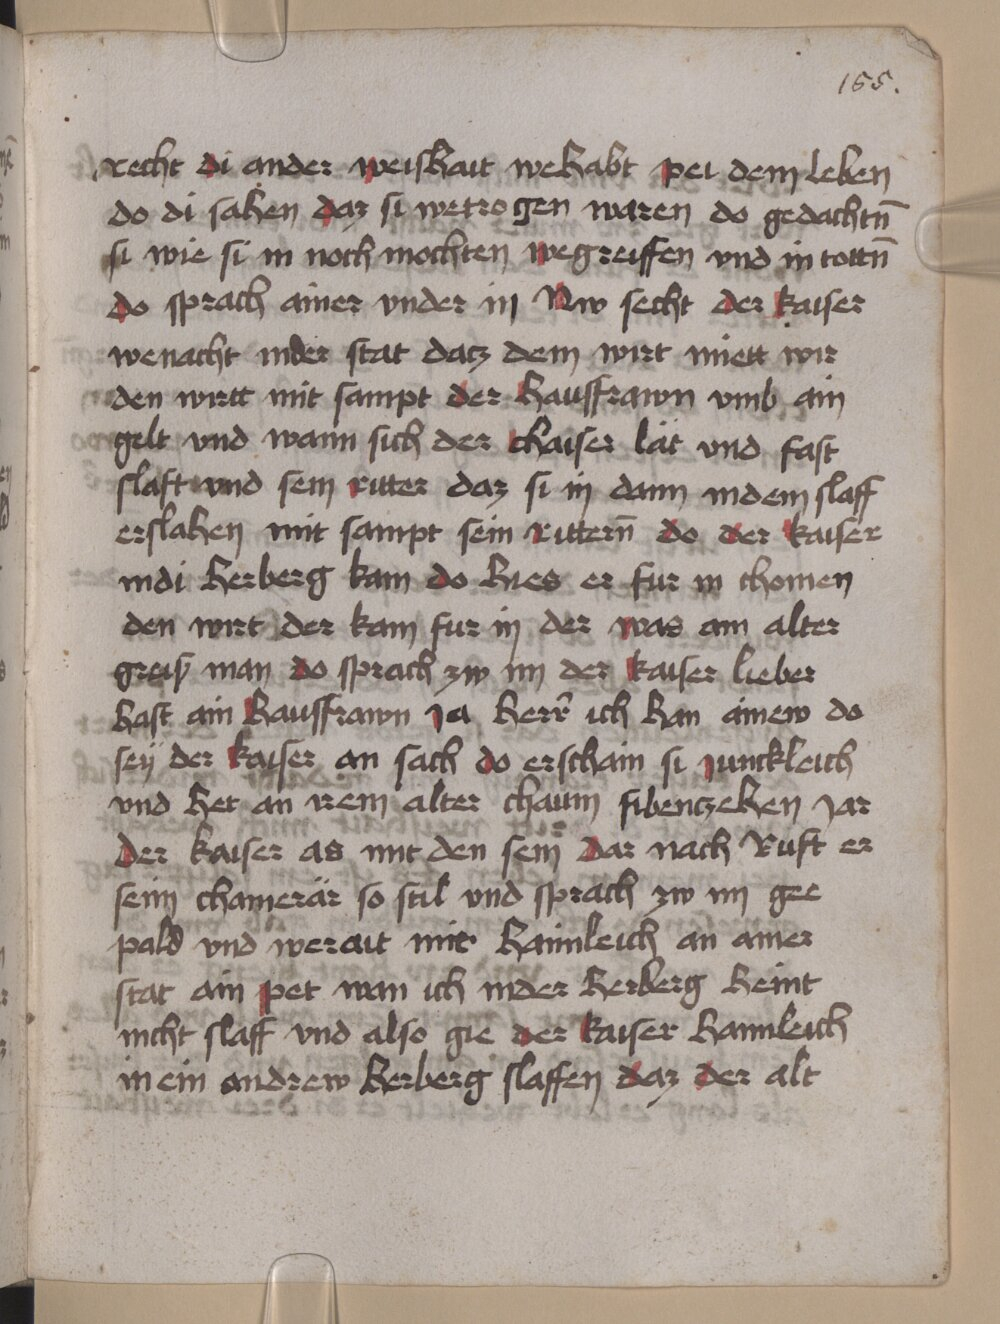 155.
recht di ander weishait wehabt pei dem leben
do di sahen daz si wetrogen waren do gedachtn̄
si wie si in noch mochten wegreiffen vnd in tottn̄
do sprach ainer vnder in Nw secht der kaiser
wenacht in der stat datz dem wirt miett wir
den wirtt mit sampt der haussfrawn vmb ain
gelt vnd wann sich der chaiser lät vnd fast
slaft vnd sein ritter daz si in dann in dem slaff
erslahen mit sampt sein rittern̄ do der kaiser
in di herberg kam do hies er fur in chomen
den wirt der kam fur in der was ain alter
greiß man do sprach zw im der kaiser lieber
hast ain haussfrawn Ja herr̄ ich han ainew do
seÿ der kaiser an sach do erschain si junckleich
vnd het an irem alter chaum sibentzehen Jar
der kaiser as mit den sein dar nach Ruft er
seim chamerär so stil vnd sprach zw im gee
pald vnd werait mir haimleich an ainer
stat ain pet wan ich in der herberg heint
nicht slaff vnd also gie der kaiser haimleich
in ein andrew herberg slaffen daz der alt